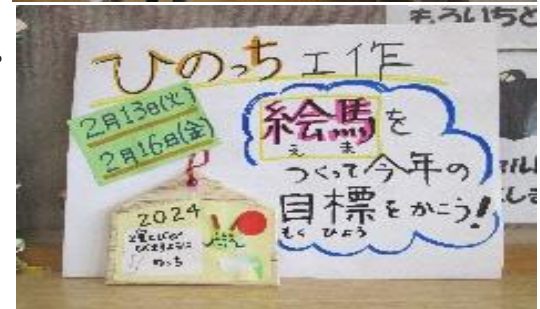 ひのっち工作
2月13日(火)
2月16日(金)
絵馬を
えま
つくって今年の
目標をかこう!
もくひょう
2024
もういちど